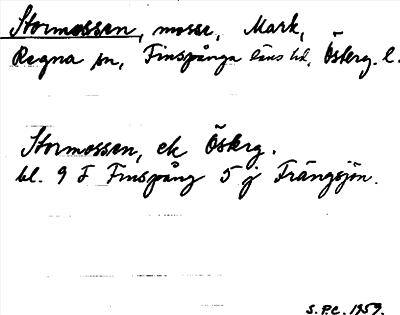 Stormossen, mosse, Mark,
Regna sn, Finspånga läns hd, Österg. l.
Stormossen, ek Österg.
bl. 9 F Finspång 5 j Frängsjön.
S.P.C. 1959.